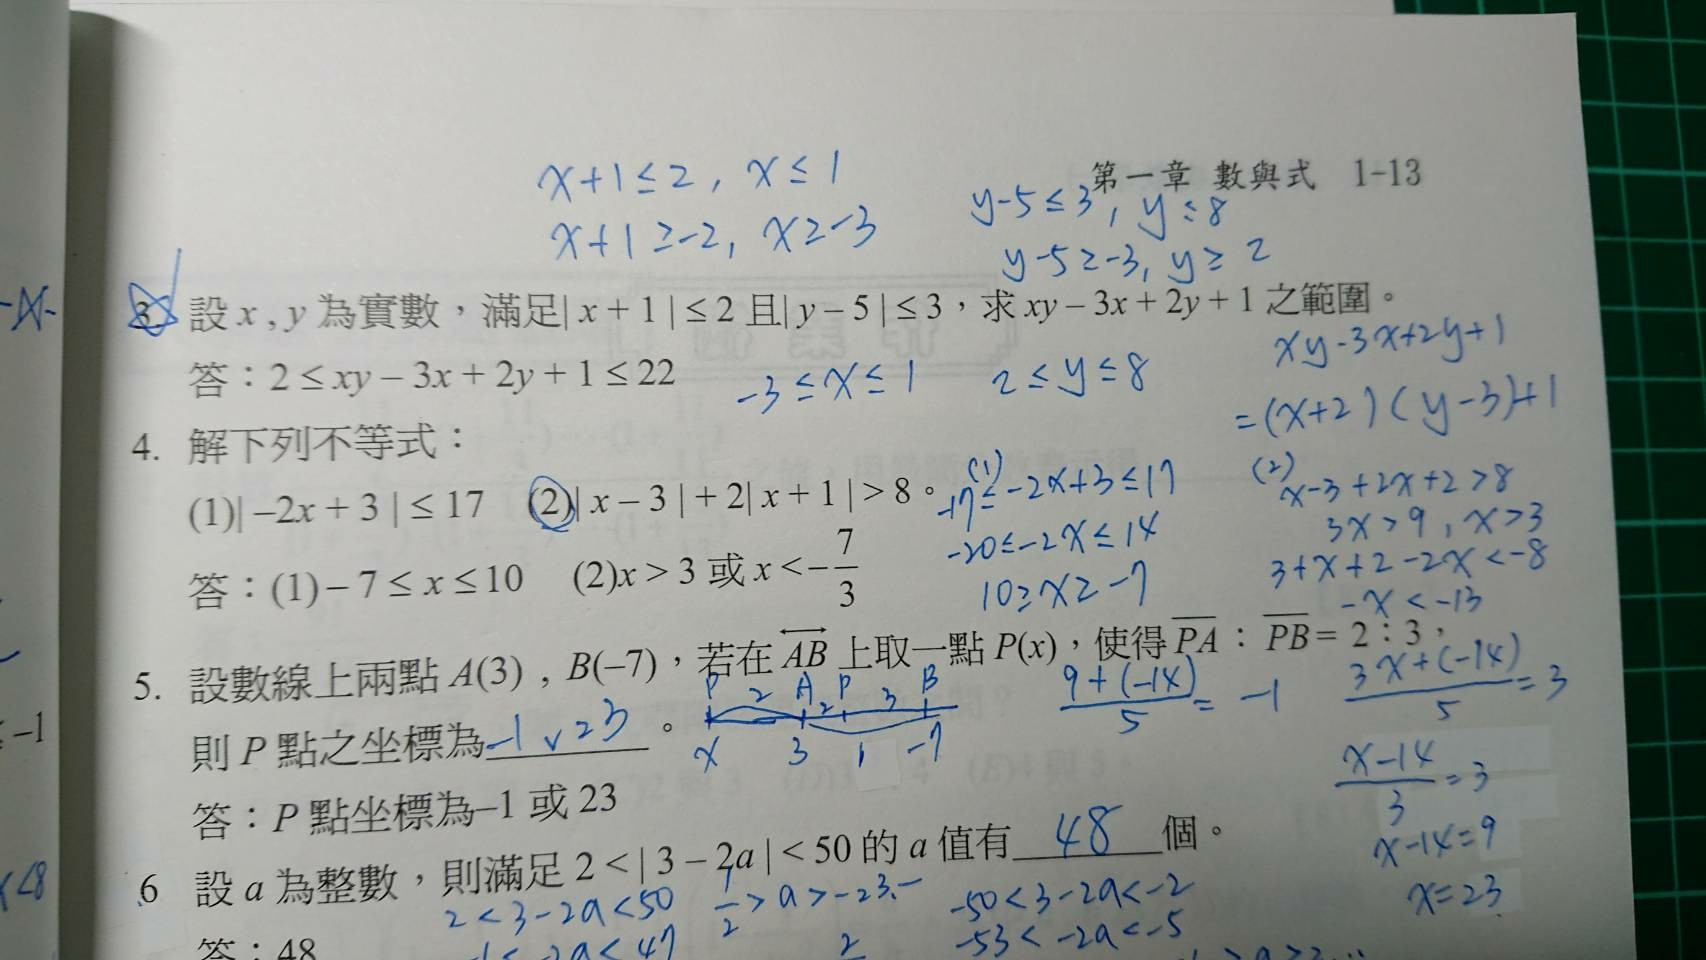 第一章 數與式 1-13
x+1≤2, x≤1
x+1≥-2, x≥-3
y-5≤3, y≤8
y-5≥-3, y≥2
3. 設 x , y 為實數，滿足| x + 1 | ≤ 2 且| y – 5 | ≤ 3，求 xy – 3x + 2y + 1 之範圍。
答：2 ≤ xy – 3x + 2y + 1 ≤ 22
-3≤x≤1 2≤y≤8
xy-3x+2y+1
=(x+2)(y-3)+1
4. 解下列不等式：
(1)| –2x + 3 | ≤ 17 (2)| x – 3 | + 2| x + 1 | > 8。
答：(1) – 7 ≤ x ≤ 10 (2)x > 3 或 x < –7/3
(1)
-17≤-2x+3≤17
-20≤-2x≤14
10≥x≥-7
(2)
x-3+2x+2>8
3x>9, x>3
3+x+2-2x<-8
-x<-13
5. 設數線上兩點 A(3) , B(–7)，若在 AB 上取一點 P(x)，使得 PA：PB = 2：3，
則 P 點之坐標為-1 v 23。
P 2 A 2 P 3 B
x 3 1 -7
9+(-14)/5 = -1
3x+(-14)/5 = 3
x-14/3 = 3
x-14=9
x=23
答：P 點坐標為–1 或 23
6 設 a 為整數，則滿足 2 < | 3 – 2a | < 50 的 a 值有 48 個。
2<3-2a<50 1/2>a>-23.-
-50<3-2a<-2
-1<-2a<47
-53<-2a<-5
答：48
-1
<8